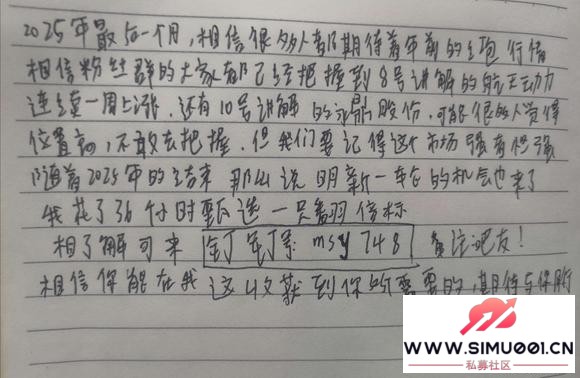 2025年最后一个月,相信很多人都期待着年前的红包行情
相信粉丝群的大家都已经把握到8号讲解的航天动力
连续一周上涨,还有10号讲解的永鼎股份,可能很多人觉得
位置高,不敢去把握,但我们要记得这个市场强者恒强
随着2025年的结束 那么说明新一轮的机会也来了
我花了36个小时甄选一只翻倍标
相了解可来 钉钉: msy748 备注吧友!
相信你能在我这收获到你所需要的,期待与你同行
WWW.SIMU001.CN
私募社区